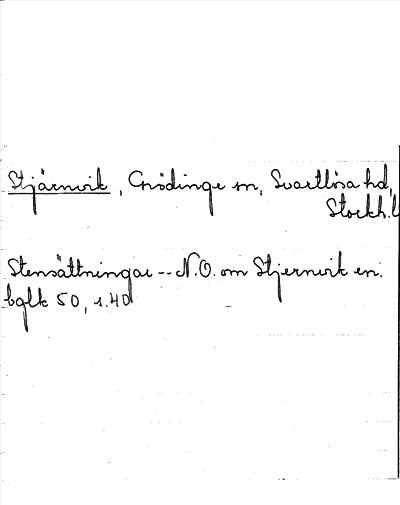 Stjärnvik, Grödinge sn, Svartlösa hd,
Stockh.l
Stensättningar -- N.O. om Stjernvik en.
bglk 50, s.40